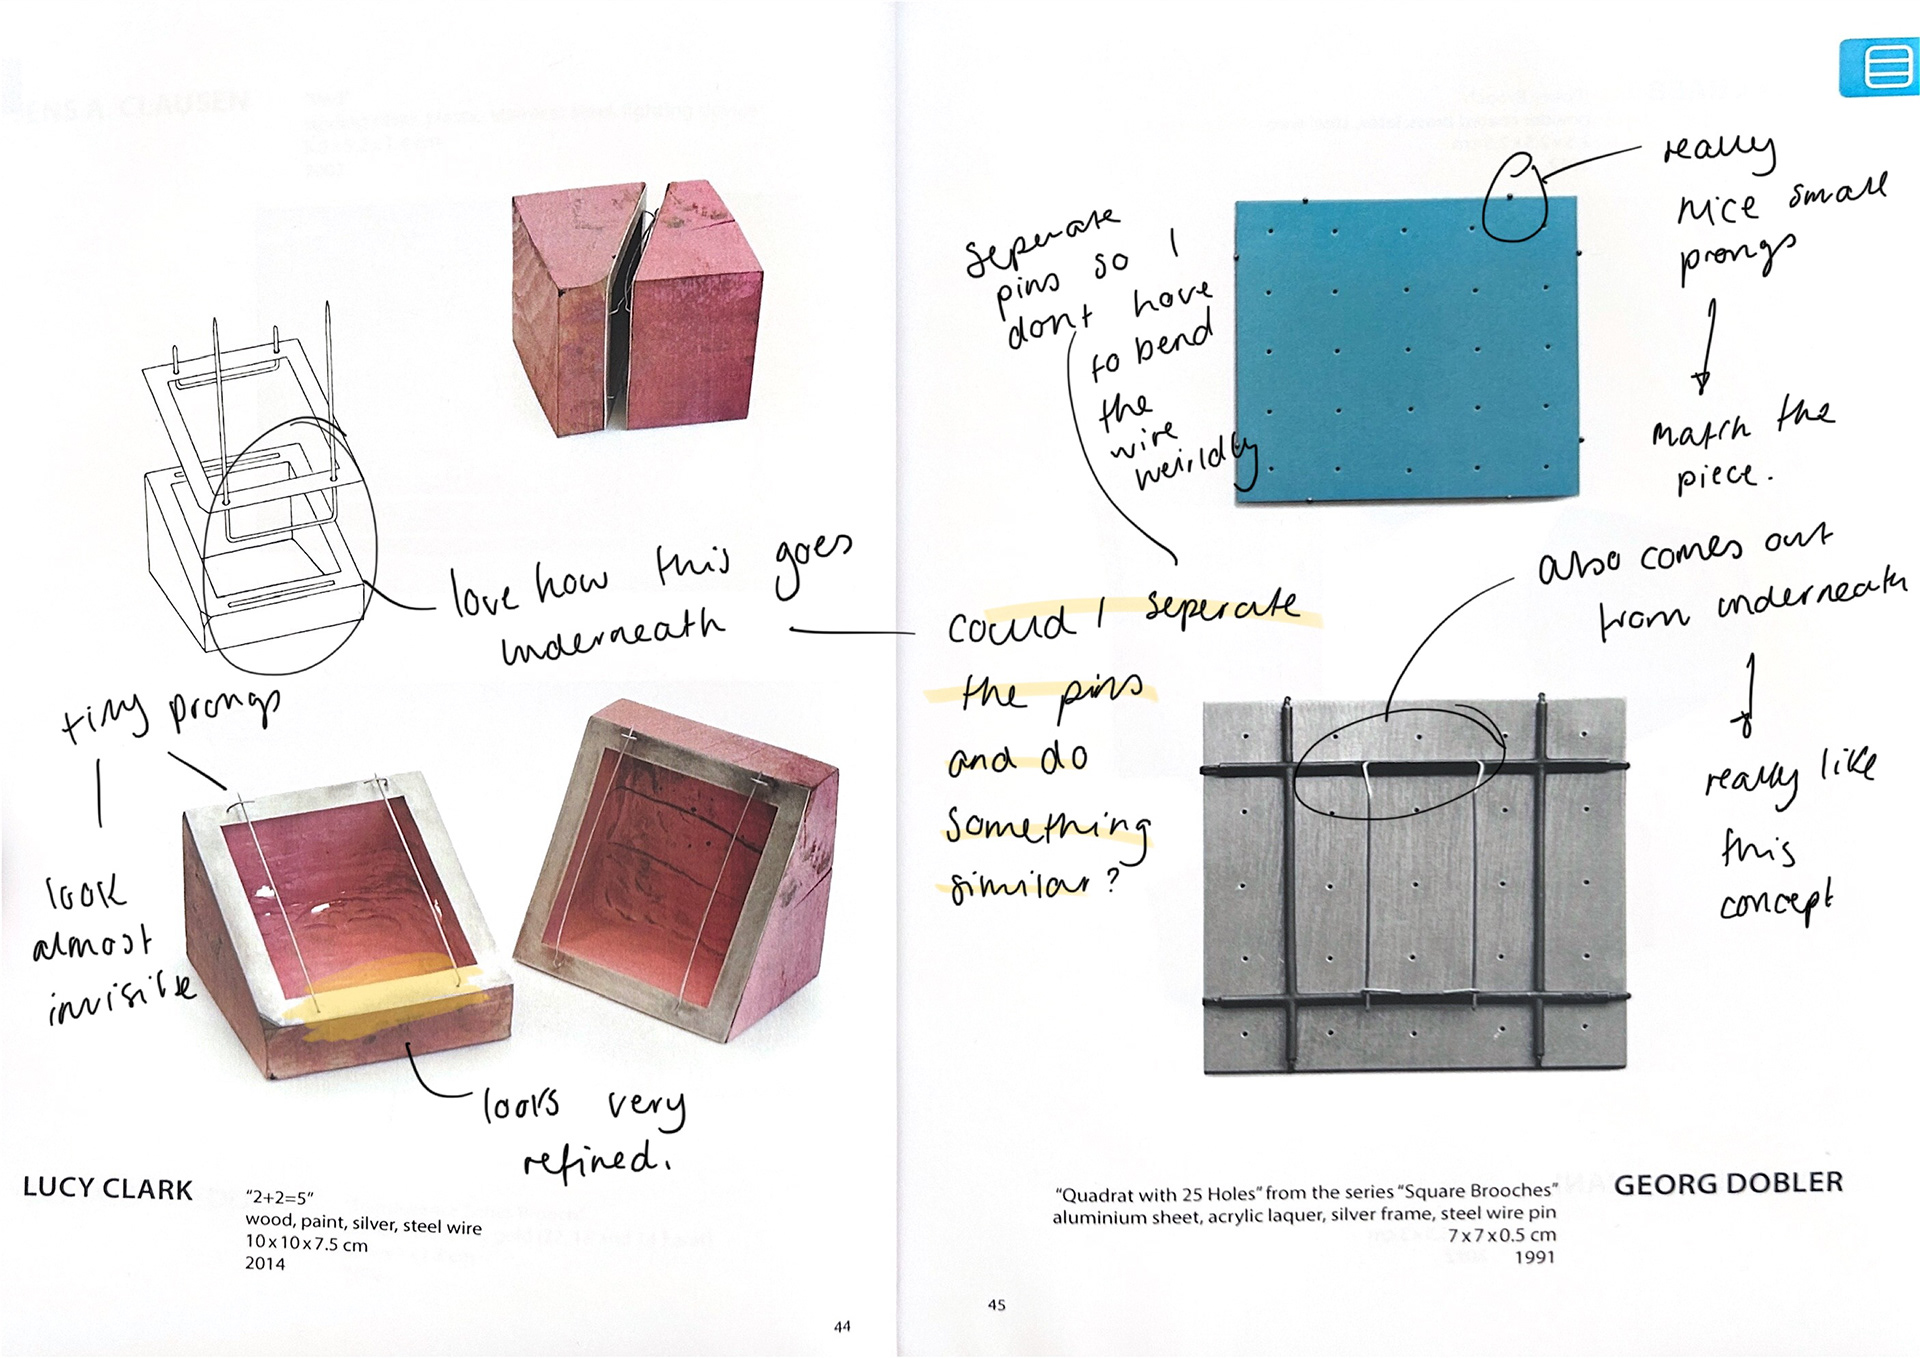 love how this goes
underneath
tiny prongs
look
almost
invisible
looks very
refined.
LUCY CLARK
"2+2=5"
wood, paint, silver, steel wire
10 x 10 x 7.5 cm
2014
44
seperate
pins so I
dont have
to bend
the
wire
weirdly
could I seperate
the pins
and do
something
similar?
really
nice small
prongs
match the
piece.
also comes out
from underneath
really like
this
concept
GEORG DOBLER
"Quadrat with 25 Holes" from the series "Square Brooches"
aluminium sheet, acrylic laquer, silver frame, steel wire pin
7 x 7 x 0.5 cm
1991
45